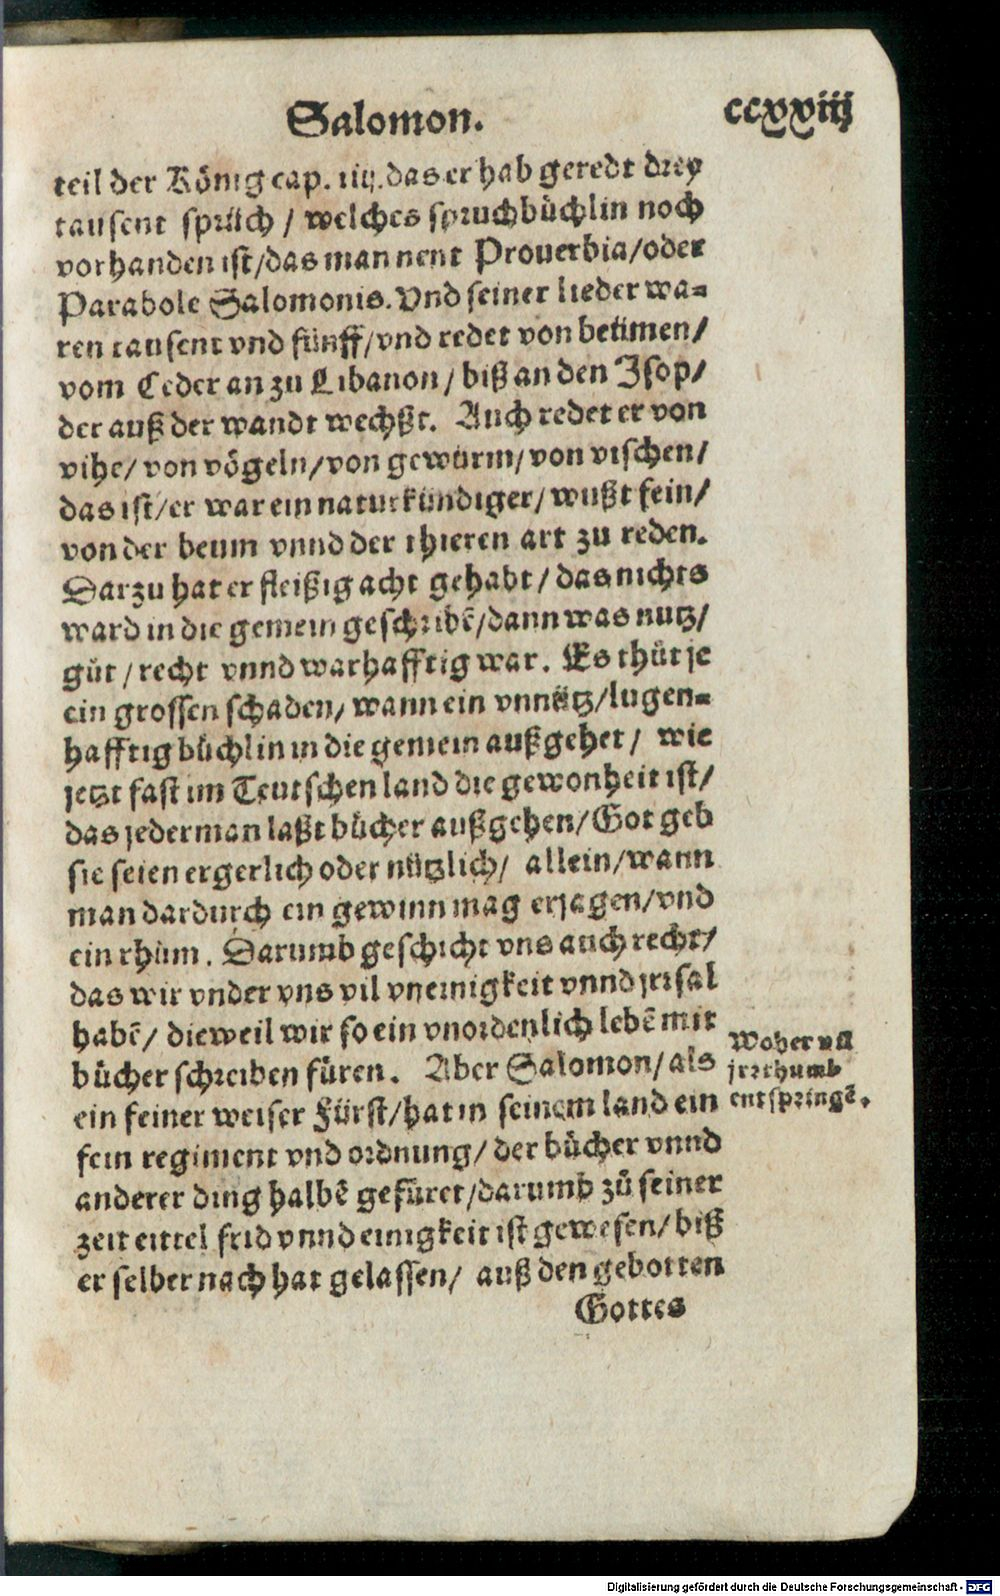 Salomon.
ccxxiij
teil der König cap. iiij. das er hab geredt drey
tausent sprüch / welches spruchbüchlin noch
vorhanden ist/das man nent Prouerbia/oder
Parabole Salomonis. Vnd seiner lieder wa-
ren tausent vnd fünff/vnd redet von beümen/
vom Ceder an zu Libanon/ biß an den Isop/
der auß der wandt wechßt. Auch redet er von
vihe/ von vögeln/von gewürm/von vischen/
das ist/er war ein naturkündiger/ wußt fein/
von der beum vnnd der thieren art zu reden.
Darzu hat er fleißig acht gehabt/ das nichts
ward in die gemein geschribẽ/dann was nutz/
gůt / recht vnnd warhafftig war. Es thůt je
ein grossen schaden/ wann ein vnnütz/lugen-
hafftig büchlin in die gemein außgehet/ wie
jetzt fast im Teutschen land die gewonheit ist/
das jederman laßt bücher außgehen/Got geb
sie seien ergerlich oder nützlich/ allein/wann
man dardurch ein gewinn mag erjagen/vnd
ein rhům. Darumb geschicht vns auch recht/
das wir vnder vns vil vneinigkeit vnnd jrrsal
habẽ/ dieweil wir so ein vnordenlich lebẽ mit
bücher schreiben füren. Aber Salomon/ als
ein feiner weiser Fürst/hat in seinem land ein
fein regiment vnd ordnung/ der bücher vnnd
anderer ding halbẽ gefüret/darumb zů seiner
zeit eittel frid vnnd einigkeit ist gewesen/ biß
er selber nach hat gelassen/ auß den gebotten
Gottes
Woher vil
jrrthumb
entspringẽ.
Digitalisierung gefördert durch die Deutsche Forschungsgemeinschaft - DFG